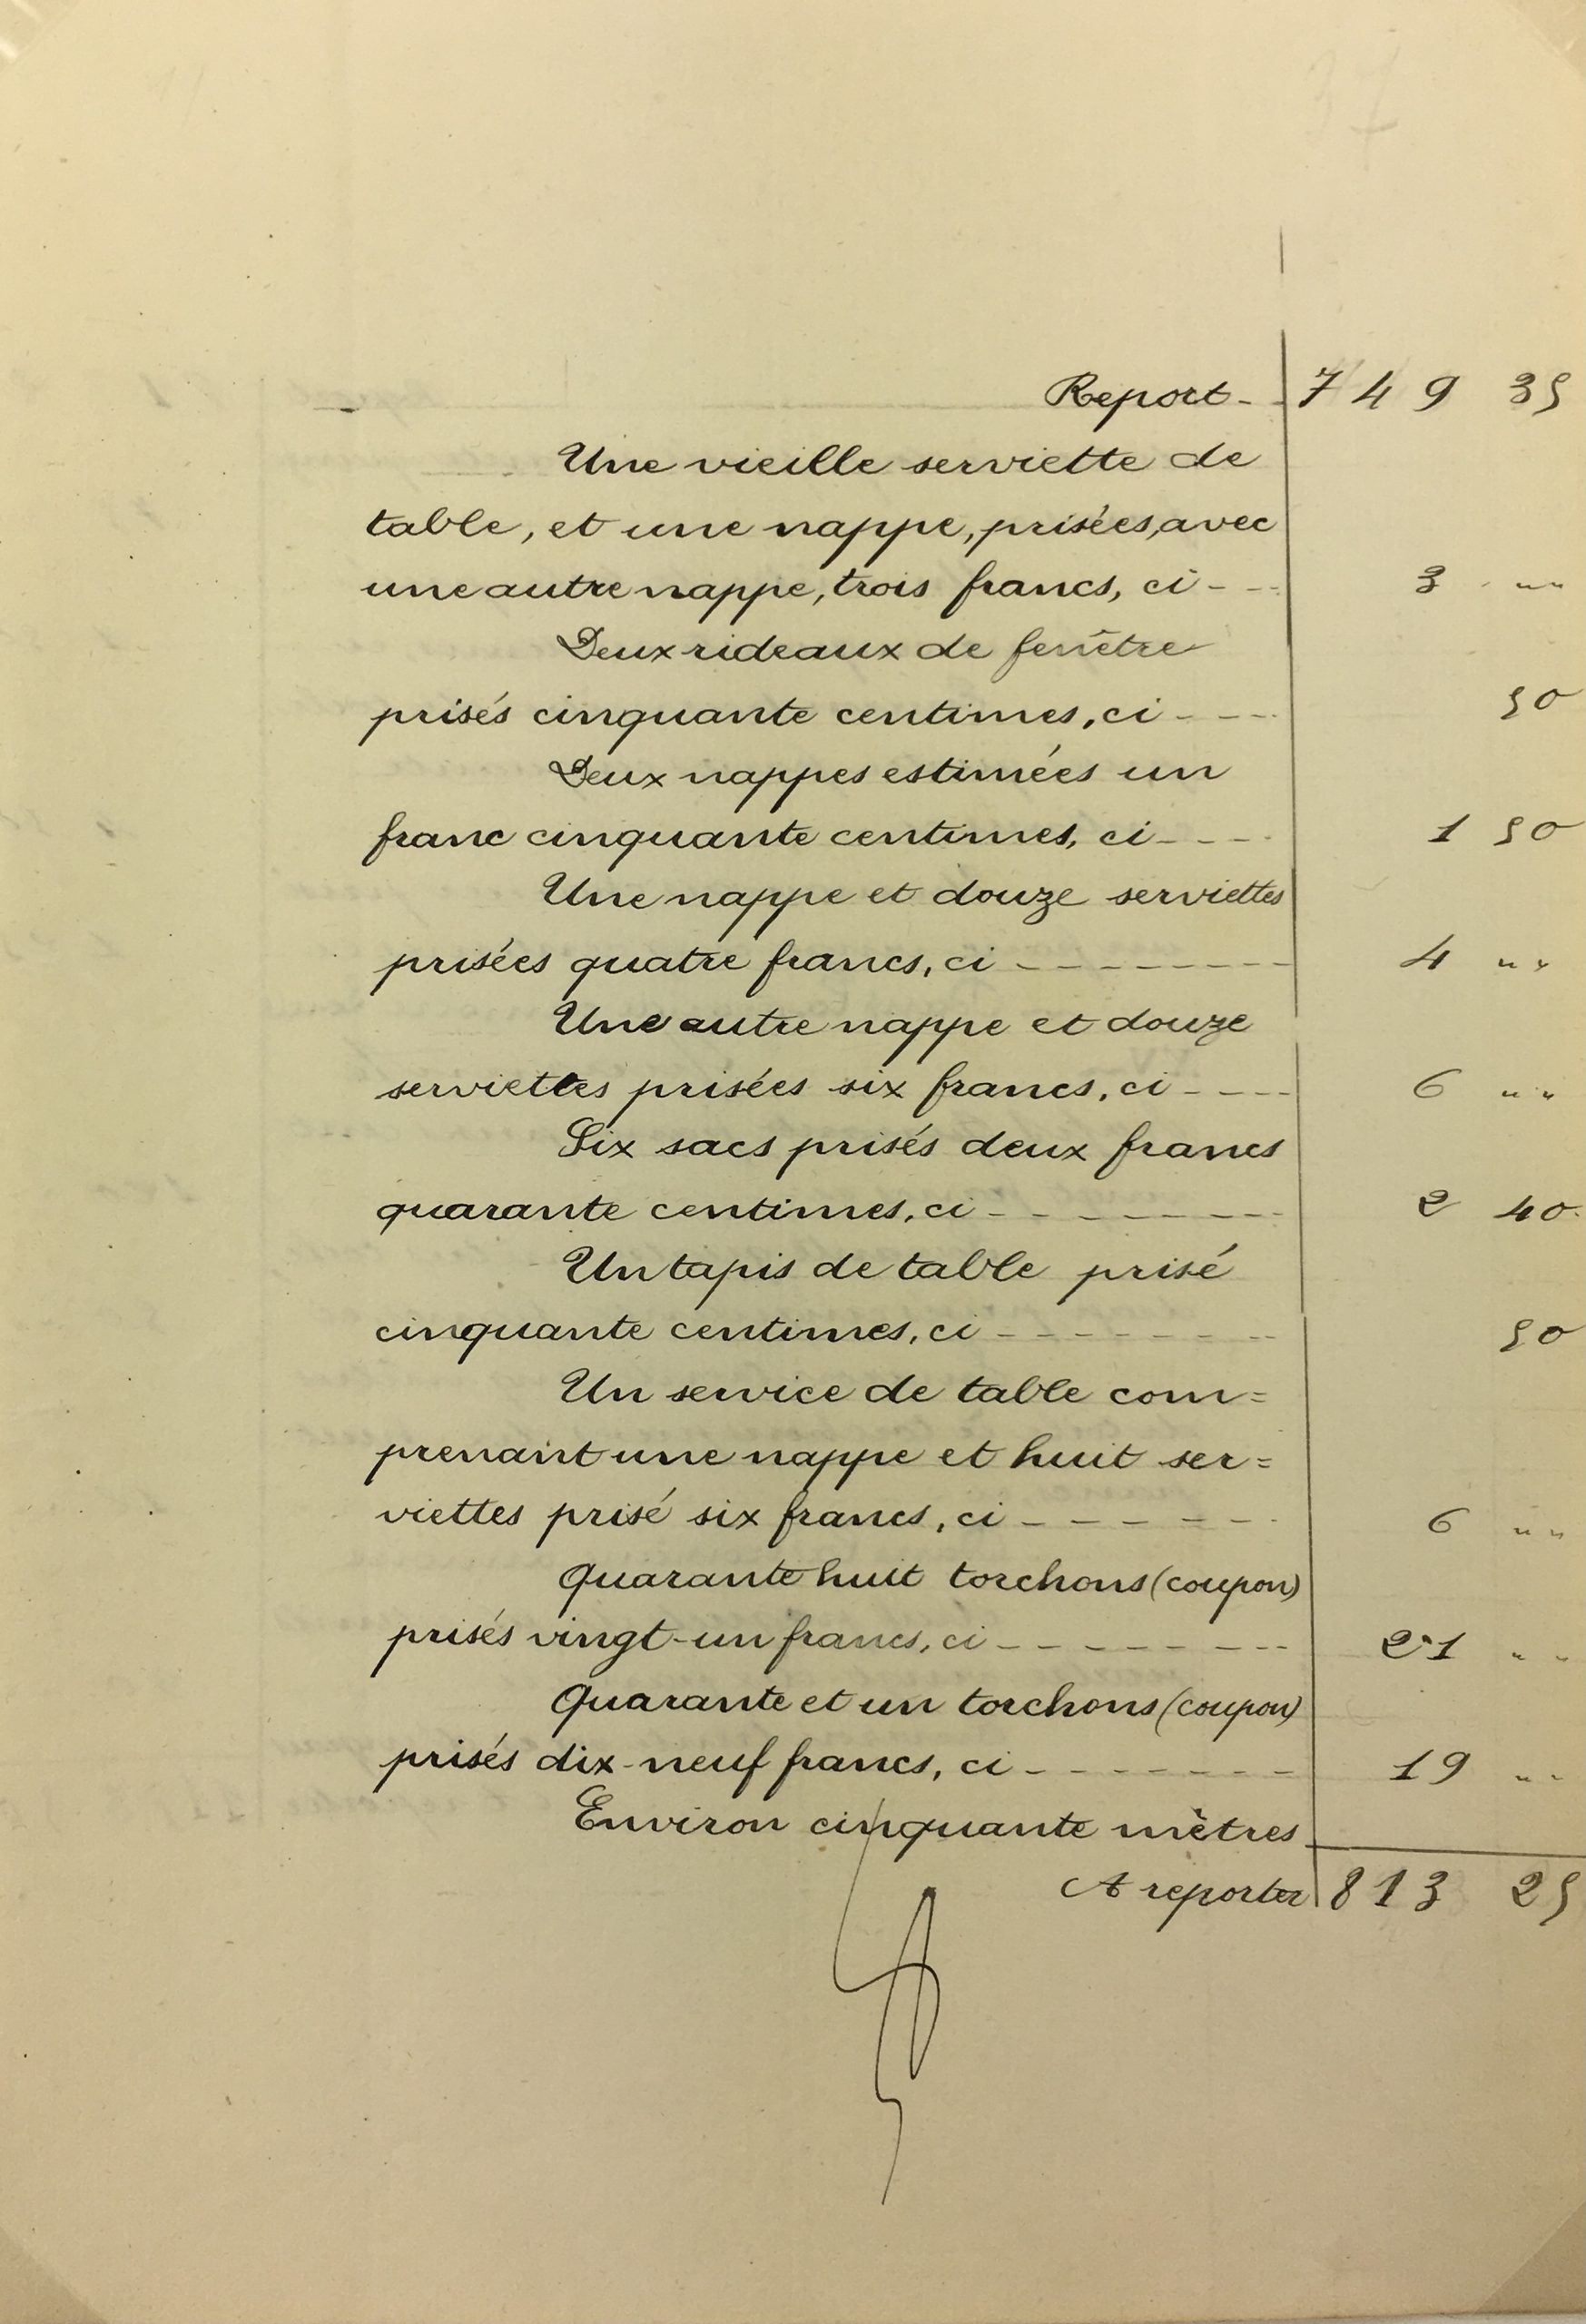 Report - 749 35
Une vieille serviette de
table, et une nappe, prisées, avec
une autre nappe, trois francs, ci - - 3 " "
Deux rideaux de fenêtre
prisés cinquante centimes, ci - - - 50
Deux nappes estimées un
franc cinquante centimes, ci - - - 1 50
Une nappe et douze serviettes
prisées quatre francs, ci - - - - - - 4 " "
Une autre nappe et douze
serviettes prisées six francs, ci - - - 6 " "
Six sacs prisés deux francs
quarante centimes, ci - - - - - - 2 40
Un tapis de table prisé
cinquante centimes, ci - - - - - - 50
Un service de table com=
prenant une nappe et huit ser=
viettes prisé six francs, ci - - - - - - 6 " "
Quarante huit torchons (coupon)
prisés vingt-un francs, ci - - - - - - 21 " "
Quarante et un torchons (coupon)
prisés dix-neuf francs, ci - - - - - - 19 " "
Environ cinquante mètres
A reporter 813 25